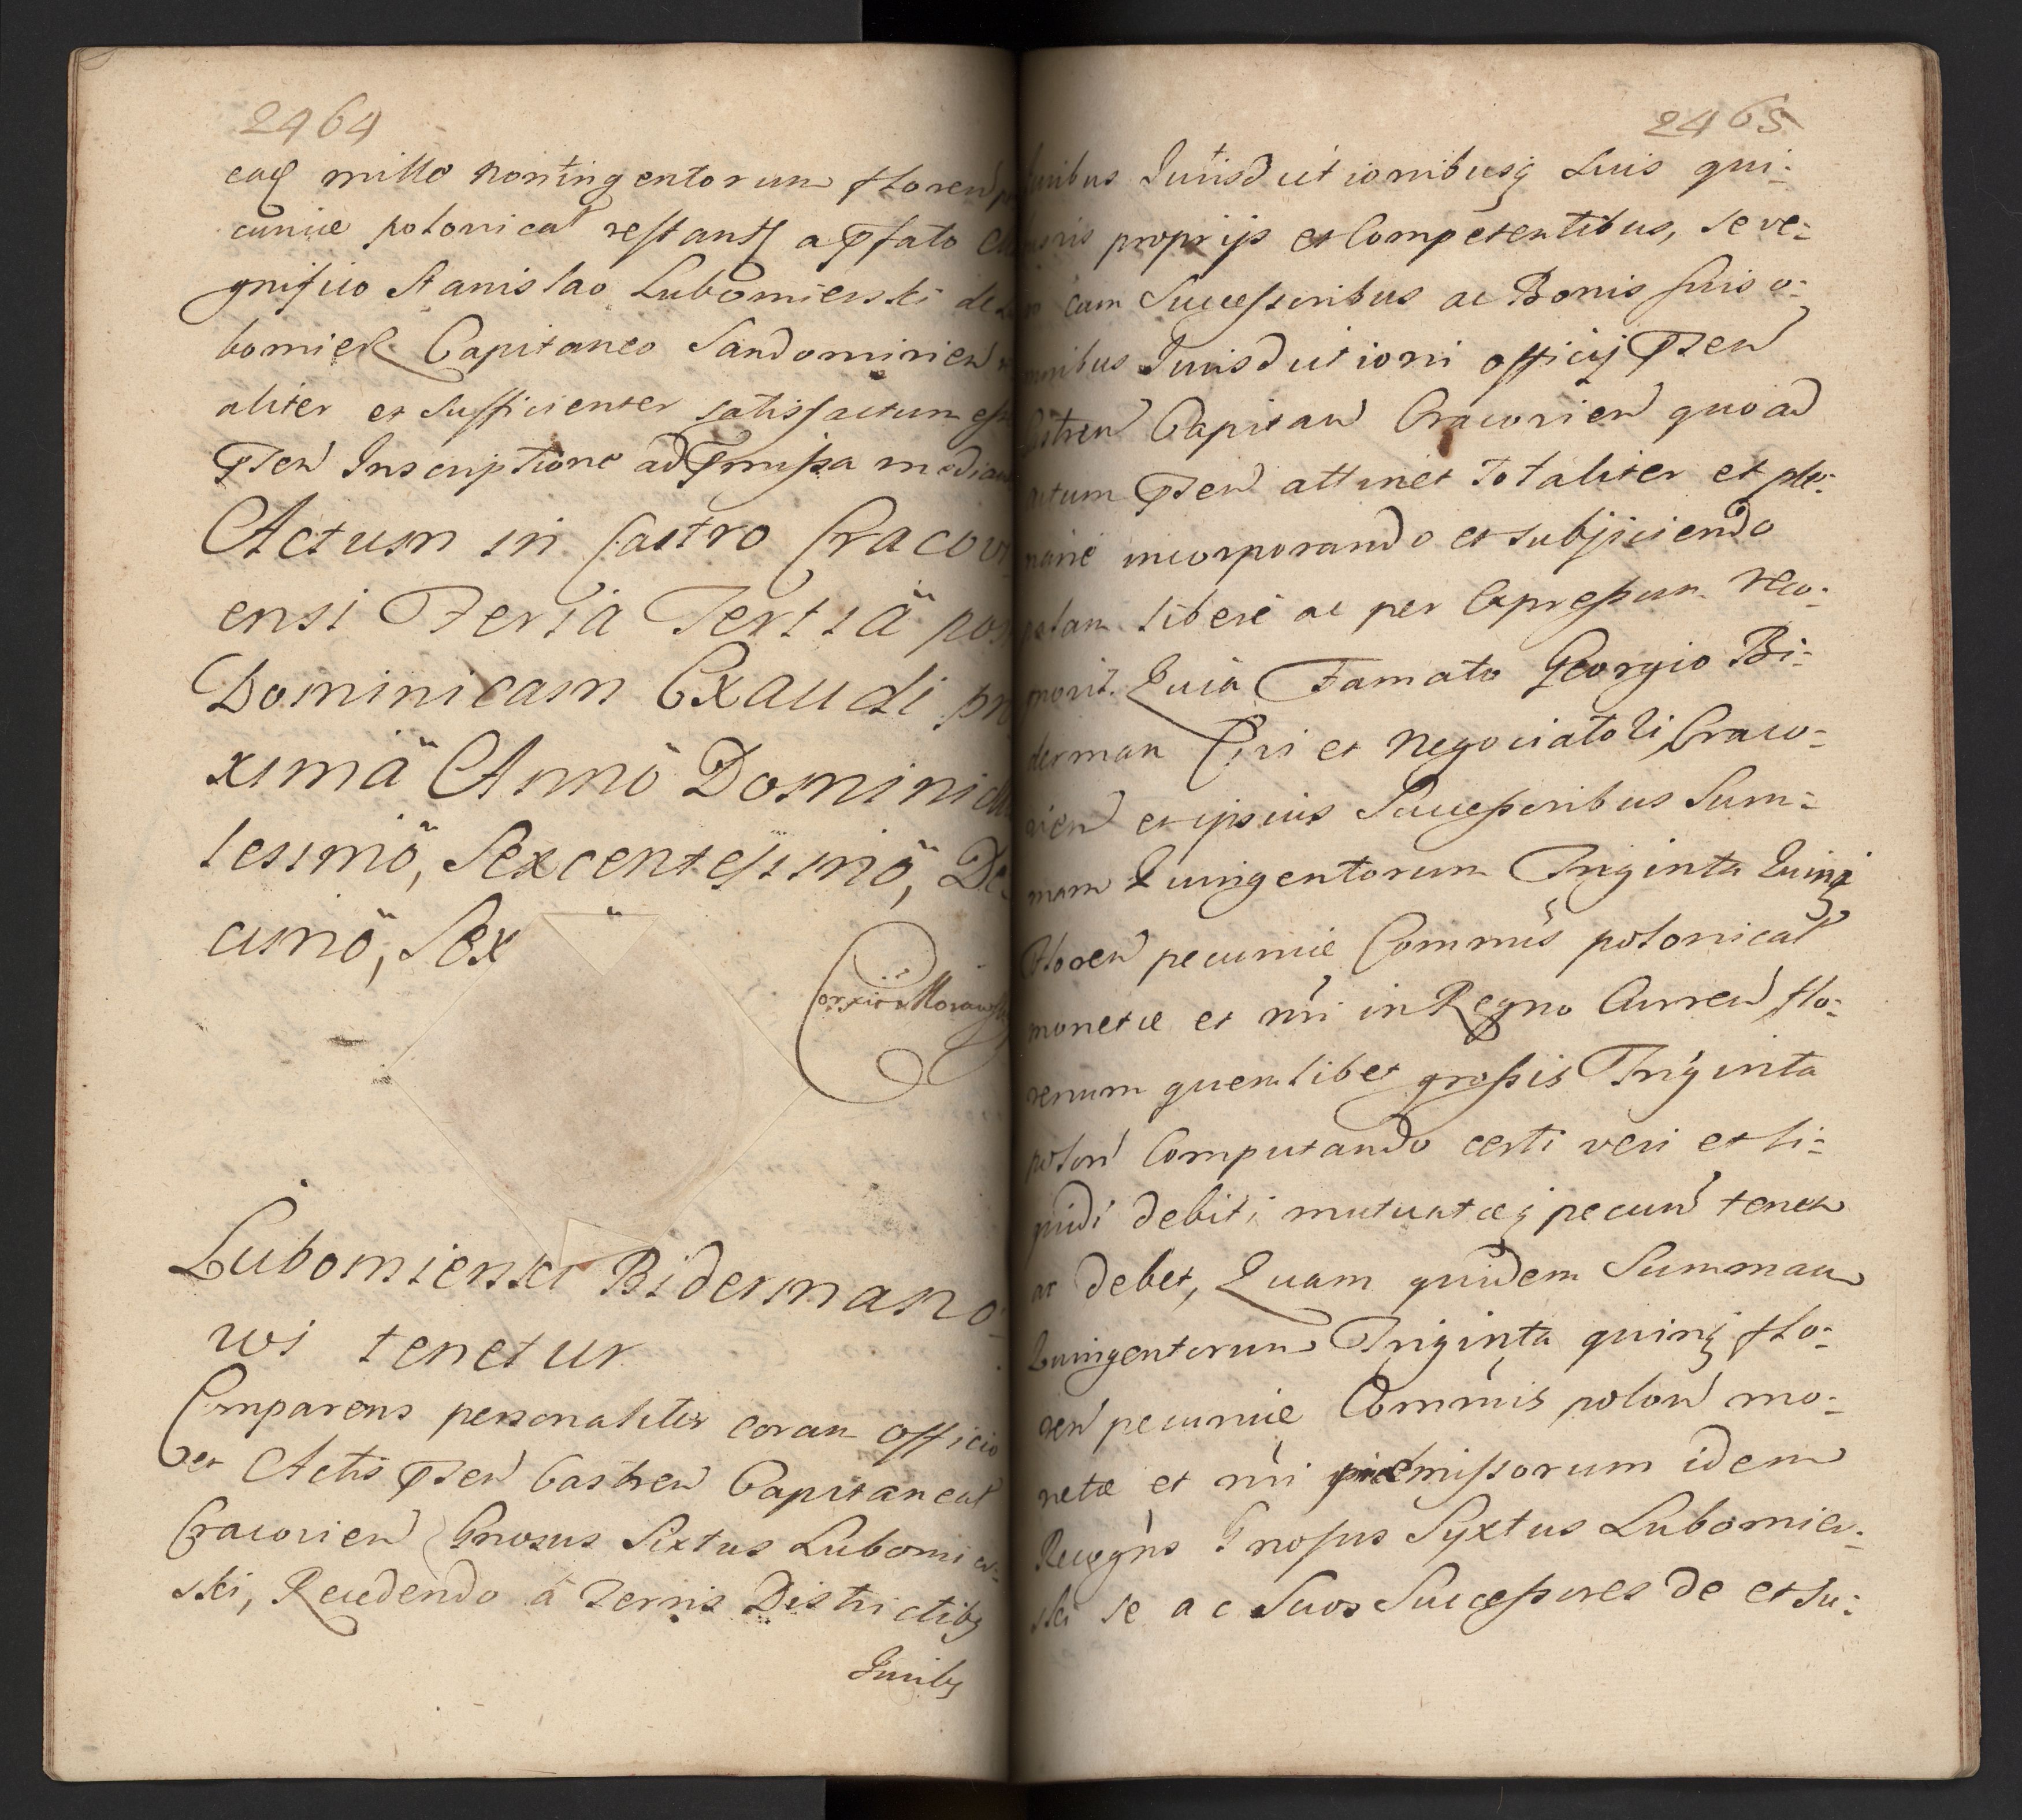 2464
eaq mille noningentorum floren
cuniæ polonical restant a Pfato
gnifico Stanislao Lubomierski de
bomierz Capitaneo Sandomirien
aliter et Sufficienter satisfactum esse
Pnen Inscriptione ad Pmissa median
Actum in Castro Cracovi
ensi Feria Tertiä post
Dominicam Exaudi pro
ximä Annö Domini
lesimö, Sexcentesimö, De:
cimö, Sex
Lubomierski Bidermano:
wi tenetur
Comparens personaliter coram officio
et Actis Pnen Castren Capitaneal
Cracovien Gnosus Sixtus Lubomier:
ski, Recedendo à Terris Districtibq
Juribq
2465
Juribus Jurisductionibusq suis qui:
proprijs et Competentibus, Seve:
cum Successoribus ac Bonis suis o:
mnibus Jurisductioni officij Pnen
Castren Capitan Cracovien quo ad
actum Pnen attinet Totaliter et ple:
narie incorporando et subjiciendo
palam liberé ac per Expressum reco:
gnovit. Quia Famato Georgio Bi:
derman Civi et Negociatori Craco:
vien et ipsius Successoribus Sum:
mam Quingentorum Triginta Quinq
Floren pecuniæ Commūs polonical
monetæ et nrī in Regno Curren flo:
renum quemlibet grossis Triginta
polon Computando certi veri et li:
quidi debiti mutuatæq pecun tenetur
ac debet, Quam quidem Summam
Quingentorum Triginta quinq flo:
ren pecuniæ Commūis polon mo:
netæ et nrī præmissorum idem
Recogns Gnosus Syxtus Lubomier:
ski se ac Suos Successores de et su: